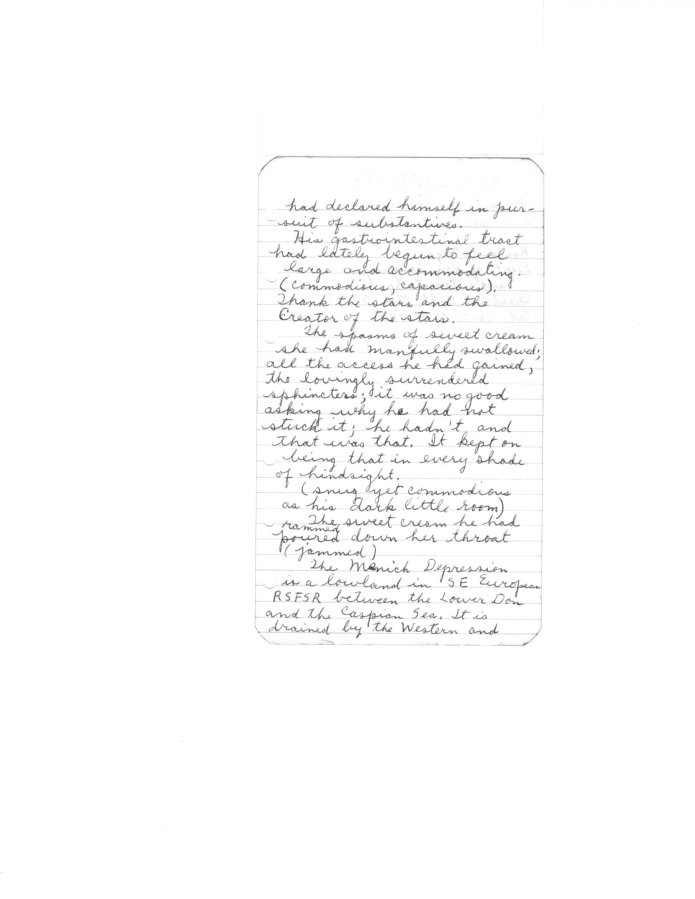 had declared himself in pur-
suit of substantives.
His gastrointestinal tract
had lately begun to feel
large and accommodating.
(commodious, capacious).
Thank the stars and the
Creator of the stars.
The spasms of sweet cream
she had manfully swallowed;
all the access he had gained,
the lovingly surrendered
sphincters; it was no good
asking why he had not
stuck it; he hadn't and
that was that. It kept on
being that in every shade
of hindsight.
(snug yet commodious
as his dark little room)
The sweet cream he had
rammed
poured down her throat
(jammed)
The Manich Depression
is a lowland in SE European
RSFSR between the Lower Don
and the Caspian Sea. It is
drained by the Western and